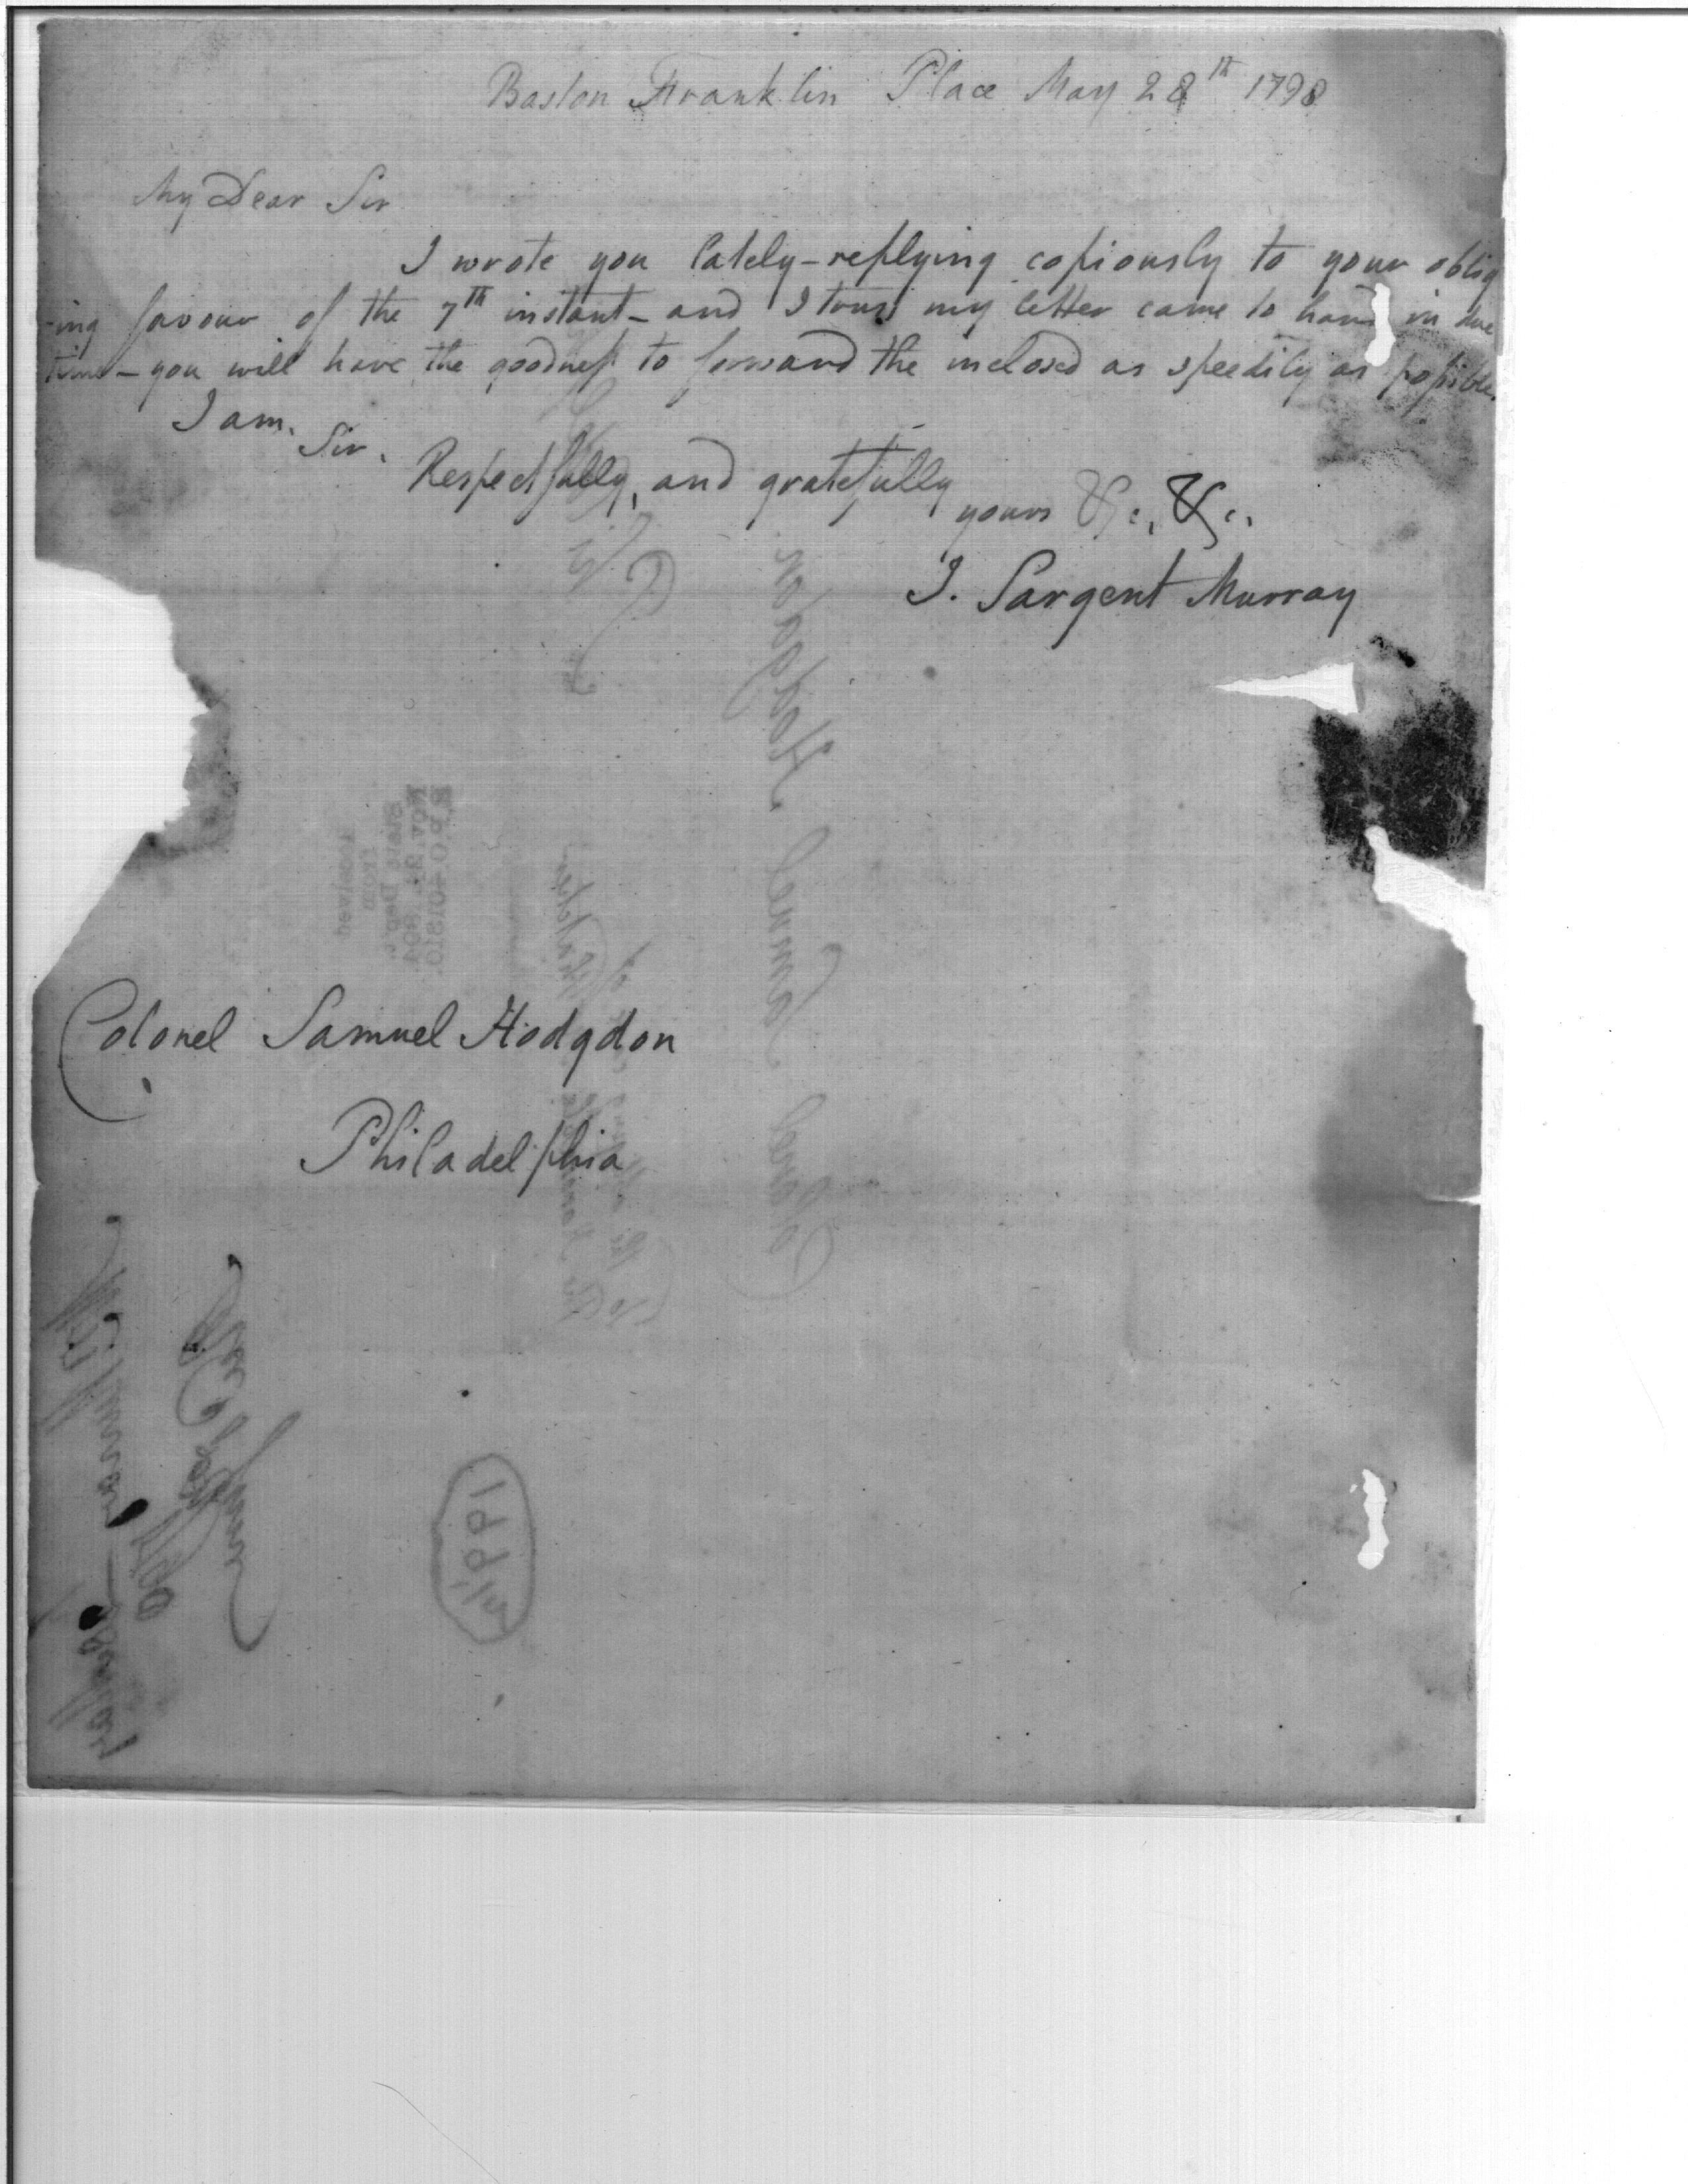 Boston Franklin Place May 28th 1798
My Dear Sir
I wrote you lately – replying copiously to your oblig
-ing favour of the 7th instant – and I trust my letter came to hand in due
time – you will have the goodness to forward the inclosed as speedily as possible.
I am.
Sir.
Respectfully, and gratefully
yours &c, &c.
J. Sargent Murray
R.P.O. 401810.
State Dep't.
from
Received
Colonel Samuel Hodgdon
Philadelphia
Colonel Samuel Hodgdon